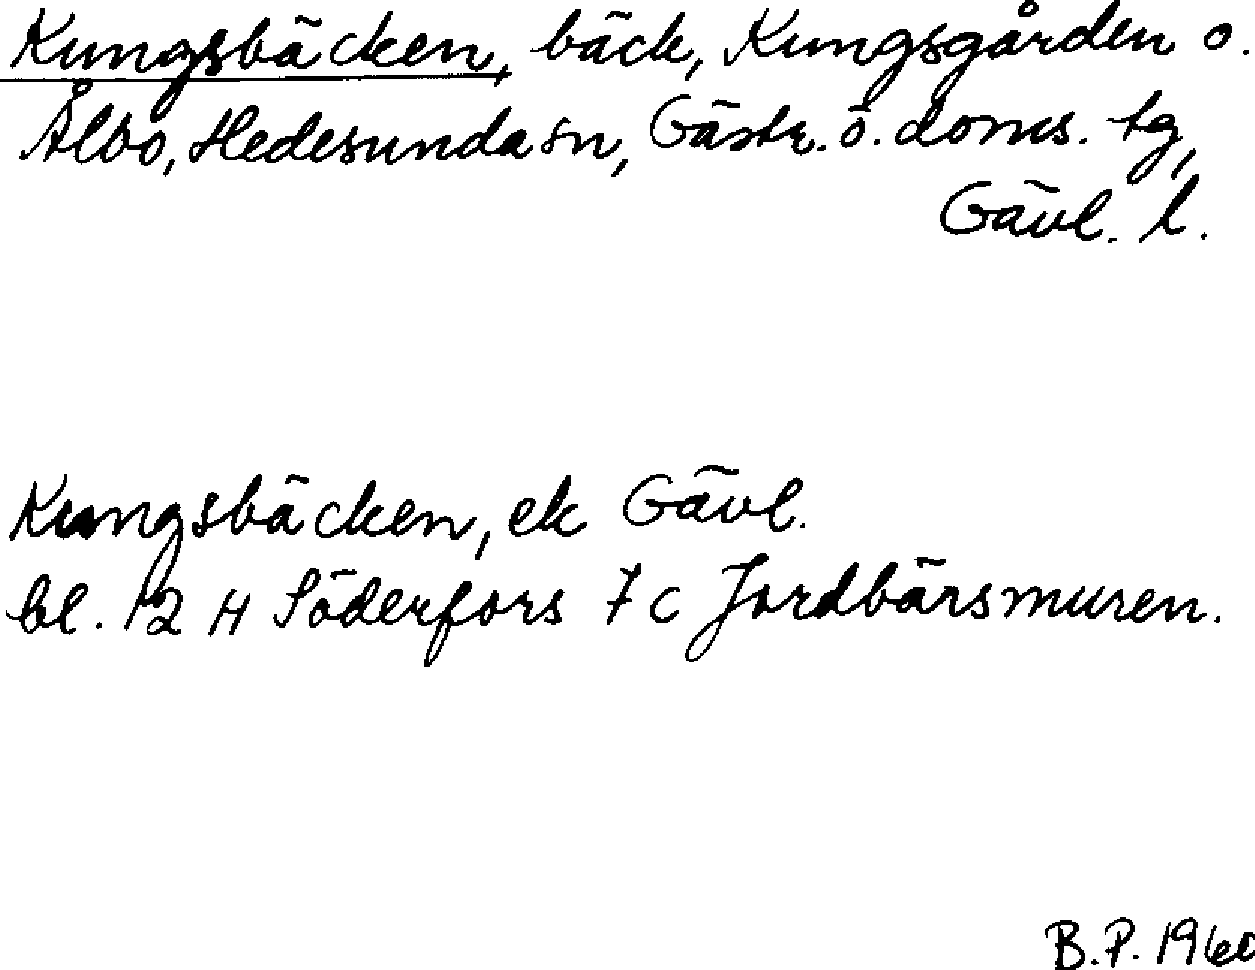 Kungsbäcken, bäck, Kungsgården o.
Ålbo, Hedesunda sn, Gästr. ö. doms. tg,
Gävl. l.
Kungsbäcken, ek Gävl.
bl. 12 H Söderfors 7 c Jordbärsmuren.
B.P. 1960